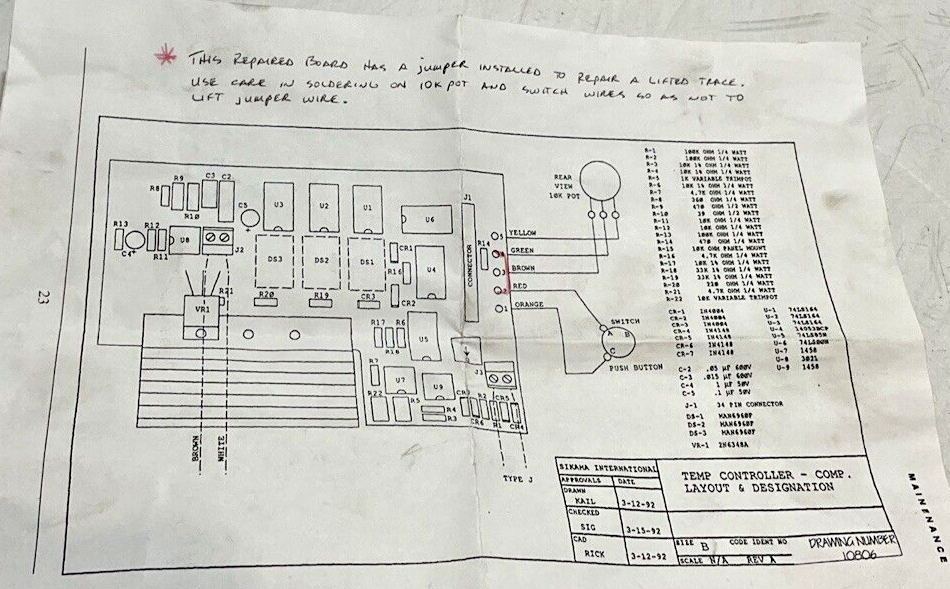 * THIS REPAIRED BOARD HAS A JUMPER INSTALLED TO REPAIR A LIFTED TRACE.
USE CARE IN SOLDERING ON 10K POT AND SWITCH WIRES SO AS NOT TO
LIFT JUMPER WIRE.
23
R8
R9
R10
C3
C2
C5
U3
U2
U1
U6
J1
R13
C4
R12
R11
U8
J2
DS3
DS2
DS1
CR1
R16
CR2
U4
R14
CONNECTOR
R21
VR1
R20
R19
CR3
R17
R6
R18
U5
R7
U7
U9
R22
R5
R4
R3
J3
CR7
CR6
R2
R1
CR5
CR4
BROWN
WHITE
TYPE J
5
YELLOW
GREEN
3
BROWN
2
RED
1
ORANGE
REAR
VIEW
10K POT
SWITCH
A
B
C
PUSH BUTTON
R-1 100K OHM 1/4 WATT
R-2 100K OHM 1/4 WATT
R-3 10K 1% OHM 1/4 WATT
R-4 10K 1% OHM 1/4 WATT
R-5 1K VARIABLE TRIMPOT
R-6 10K 1% OHM 1/4 WATT
R-7 4.7K OHM 1/4 WATT
R-8 360 OHM 1/4 WATT
R-9 470 OHM 1/2 WATT
R-10 39 OHM 1/2 WATT
R-11 10K OHM 1/4 WATT
R-12 10K OHM 1/4 WATT
R-13 100K OHM 1/4 WATT
R-14 470 OHM 1/4 WATT
R-15 10K OHM PANEL MOUNT
R-16 4.7K OHM 1/4 WATT
R-17 10K 1% OHM 1/4 WATT
R-18 33K 1% OHM 1/4 WATT
R-19 33K 1% OHM 1/4 WATT
R-20 220 OHM 1/4 WATT
R-21 4.7K OHM 1/4 WATT
R-22 10K VARIABLE TRIMPOT
CR-1 IN4004
CR-2 IN4004
CR-3 IN4004
CR-4 IN4148
CR-5 IN4148
CR-6 IN4148
CR-7 IN4148
U-1 74LS164
U-2 74LS164
U-3 74LS164
U-4
U-5
U-6
U-7 1458
U-8 3021
U-9 1458
C-2 .05 µF 600V
C-3 .015 µF 600V
C-4 1 µF 50V
C-5 .1 µF 50V
J-1 34 PIN CONNECTOR
DS-1 MAN6960P
DS-2 MAN6960P
DS-3 MAN6960P
VR-1 2N6348A
SIKAMA INTERNATIONAL
APPROVALS DATE
DRAWN
KAIL 3-12-92
CHECKED
SIG 3-15-92
CAD
RICK 3-12-92
TEMP CONTROLLER - COMP.
LAYOUT & DESIGNATION
SIZE B
CODE IDENT NO
DRAWING NUMBER
10806
SCALE N/A REV A
MAINENANCE